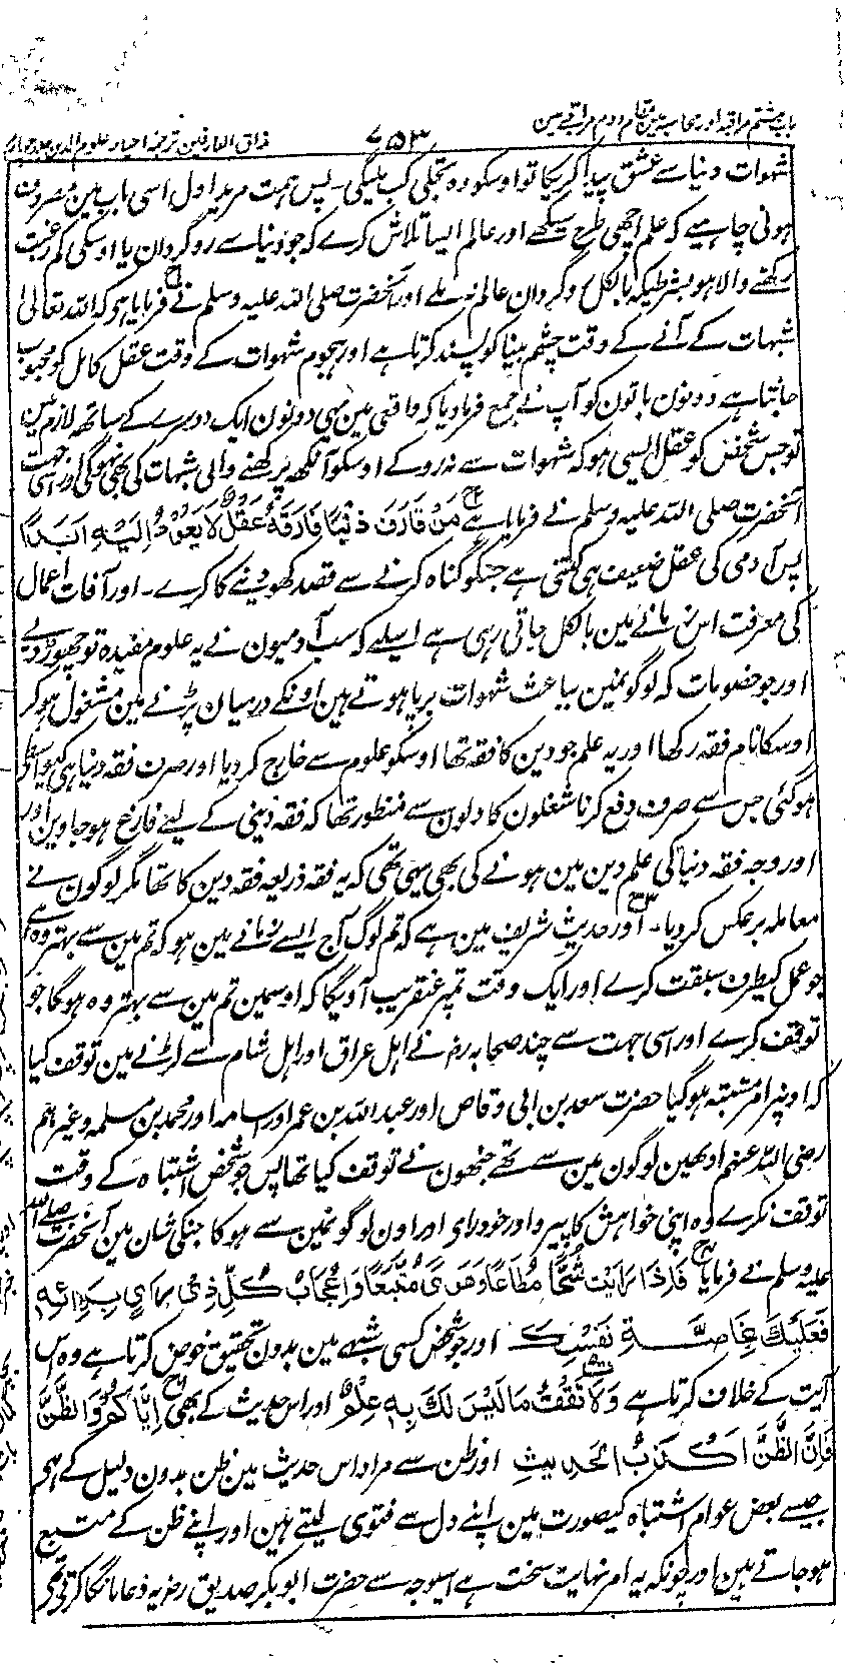 باب ہشتم مراقبہ اور محاسبہ مین مقام دوم مراقبے مین
۷۵۳
مذاق العارفین ترجمہ احیاء علوم الدین جلد چہارم
شہوات دنیا سے عشق پیدا کریگا تو اوسکو وہ تجلی کب ملیگی۔ پس ہمت مرید اول اسی باب مین مصروف
ہونی چاہیے کہ علم اچھی طرح سیکھے اور عالم ایسا تلاش کرے کہ جو دنیا سے روگردان یا اوسکی کم رغبت
رکھنے والا ہو بشرطیکہ بالکل روگردان عالم نہ ملے اور آنحضرت صلی اللہ علیہ وسلم نے فرمایا ہی کہ اللہ تعالیٰ
شبہات کے آنے کے وقت چشم بینا کو پسند کرتا ہے اور ہجوم شہوات کے وقت عقل کامل کو محبوب
جانتا ہے دونون باتون کو آپ نے جمع فرمادیا کہ واقعی مین یہی دونون ایک دوسرے کے ساتھ لازم ہین
تو جس شخص کو عقل ایسی ہو کہ شہوات سے نہ روکے اوسکو آنکھ پرکھنے والی شبہات کی بھی نہوگی اور اسی جہت
آنحضرت صلی اللہ علیہ وسلم نے فرمایا ہے مَنْ قَارَفَ ذَنْبًا فَارَقَهُ عَقْلٌ لَا يَعُوْدُ اِلَيْهِ اَبَدًا
پس آدمی کی عقل ضعیف ہی کتنی ہے جسکو گناہ کرنے سے قصد کھو دینے کا کرے۔ اور آفات اعمال
کی معرفت اس زمانے مین بالکل جاتی رہی ہے اسلیے کہ سب آدمیون نے یہ علوم مفیدہ تو چھوڑ دیے
اور جو خصومات کہ لوگونمین بباعث شہوات برپا ہوتے ہین اونکے درمیان پڑنے مین مشغول ہو کر
اوسکا نام فقہ رکھا اور یہ علم جو دین کا فقہ تھا اوسکو علوم سے خارج کر دیا اور صرف فقہ دنیا ہی کیواسطے
ہو گئی جس سے صرف دفع کرنا شغلون کا دلون سے منظور تھا کہ فقہ دینی کے لیے فارغ ہو جاوین اور
اور وجہ فقہ دنیا کی علم دین مین ہونے کی بھی یہی تھی کہ یہ فقہ ذریعہ فقہ دین کا تھا مگر لوگون نے
معاملہ برعکس کر دیا۔ اور حدیث شریف مین ہے کہ تم لوگ آج ایسے زمانے مین ہو کہ تم مین سے بہتر وہ ہے
جو عمل کیطرف سبقت کرے اور ایک وقت تمپر عنقریب آویگا کہ اوسمین تم مین سے بہتر وہ ہوگا جو
توقف کرے اور اسی جہت سے چند صحابہ رضہ نے اہل عراق اور اہل شام سے لڑنے مین توقف کیا
کہ اونپر امر مشتبہ ہو گیا حضرت سعد بن ابی وقاص اور عبد اللہ بن عمر اور اسامہ اور محمد بن مسلمہ وغیرہم
رضی اللہ عنہم اونھین لوگون مین سے تھے جنھون نے توقف کیا تھا پس جو شخص اشتباہ کے وقت
توقف نکرے وہ اپنی خواہش کا پیرو اور خودرای اور اون لوگونمین سے ہوگا جنکی شان مین آنحضرت صلے اللہ
علیہ وسلم نے فرمایا فَاِذَا رَاَيْتَ شُحًّا مُطَاعًا وَهَوًى مُتَّبَعًا وَاِعْجَابَ كُلِّ ذِيْ رَاْيٍ بِرَائِهٖ
فَعَلَيْكَ بِخَاصَّةِ نَفْسِكَ اور جو شخص کسی شبہے مین بدون تحقیق خوض کرتا ہے وہ اس
آیت کے خلاف کرتا ہے وَلَا تَقْفُ مَا لَيْسَ لَكَ بِهٖ عِلْمٌ اور اس حدیث کے بھی اِيَّاكُمْ وَالظَّنَّ
فَاِنَّ الظَّنَّ اَكْذَبُ الْحَدِيْثِ اور ظن سے مراد اس حدیث مین ظن بدون دلیل کے ہی
جیسے بعض عوام اشتباہ کیصورت مین اپنے دل سے فتویٰ لیتے ہین اور اپنے ظن کے متبع
ہو جاتے ہین اور چونکہ یہ امر نہایت سخت ہے اسیوجہ سے حضرت ابوبکر صدیق رضہ یہ دعا مانگا کرتے تھے